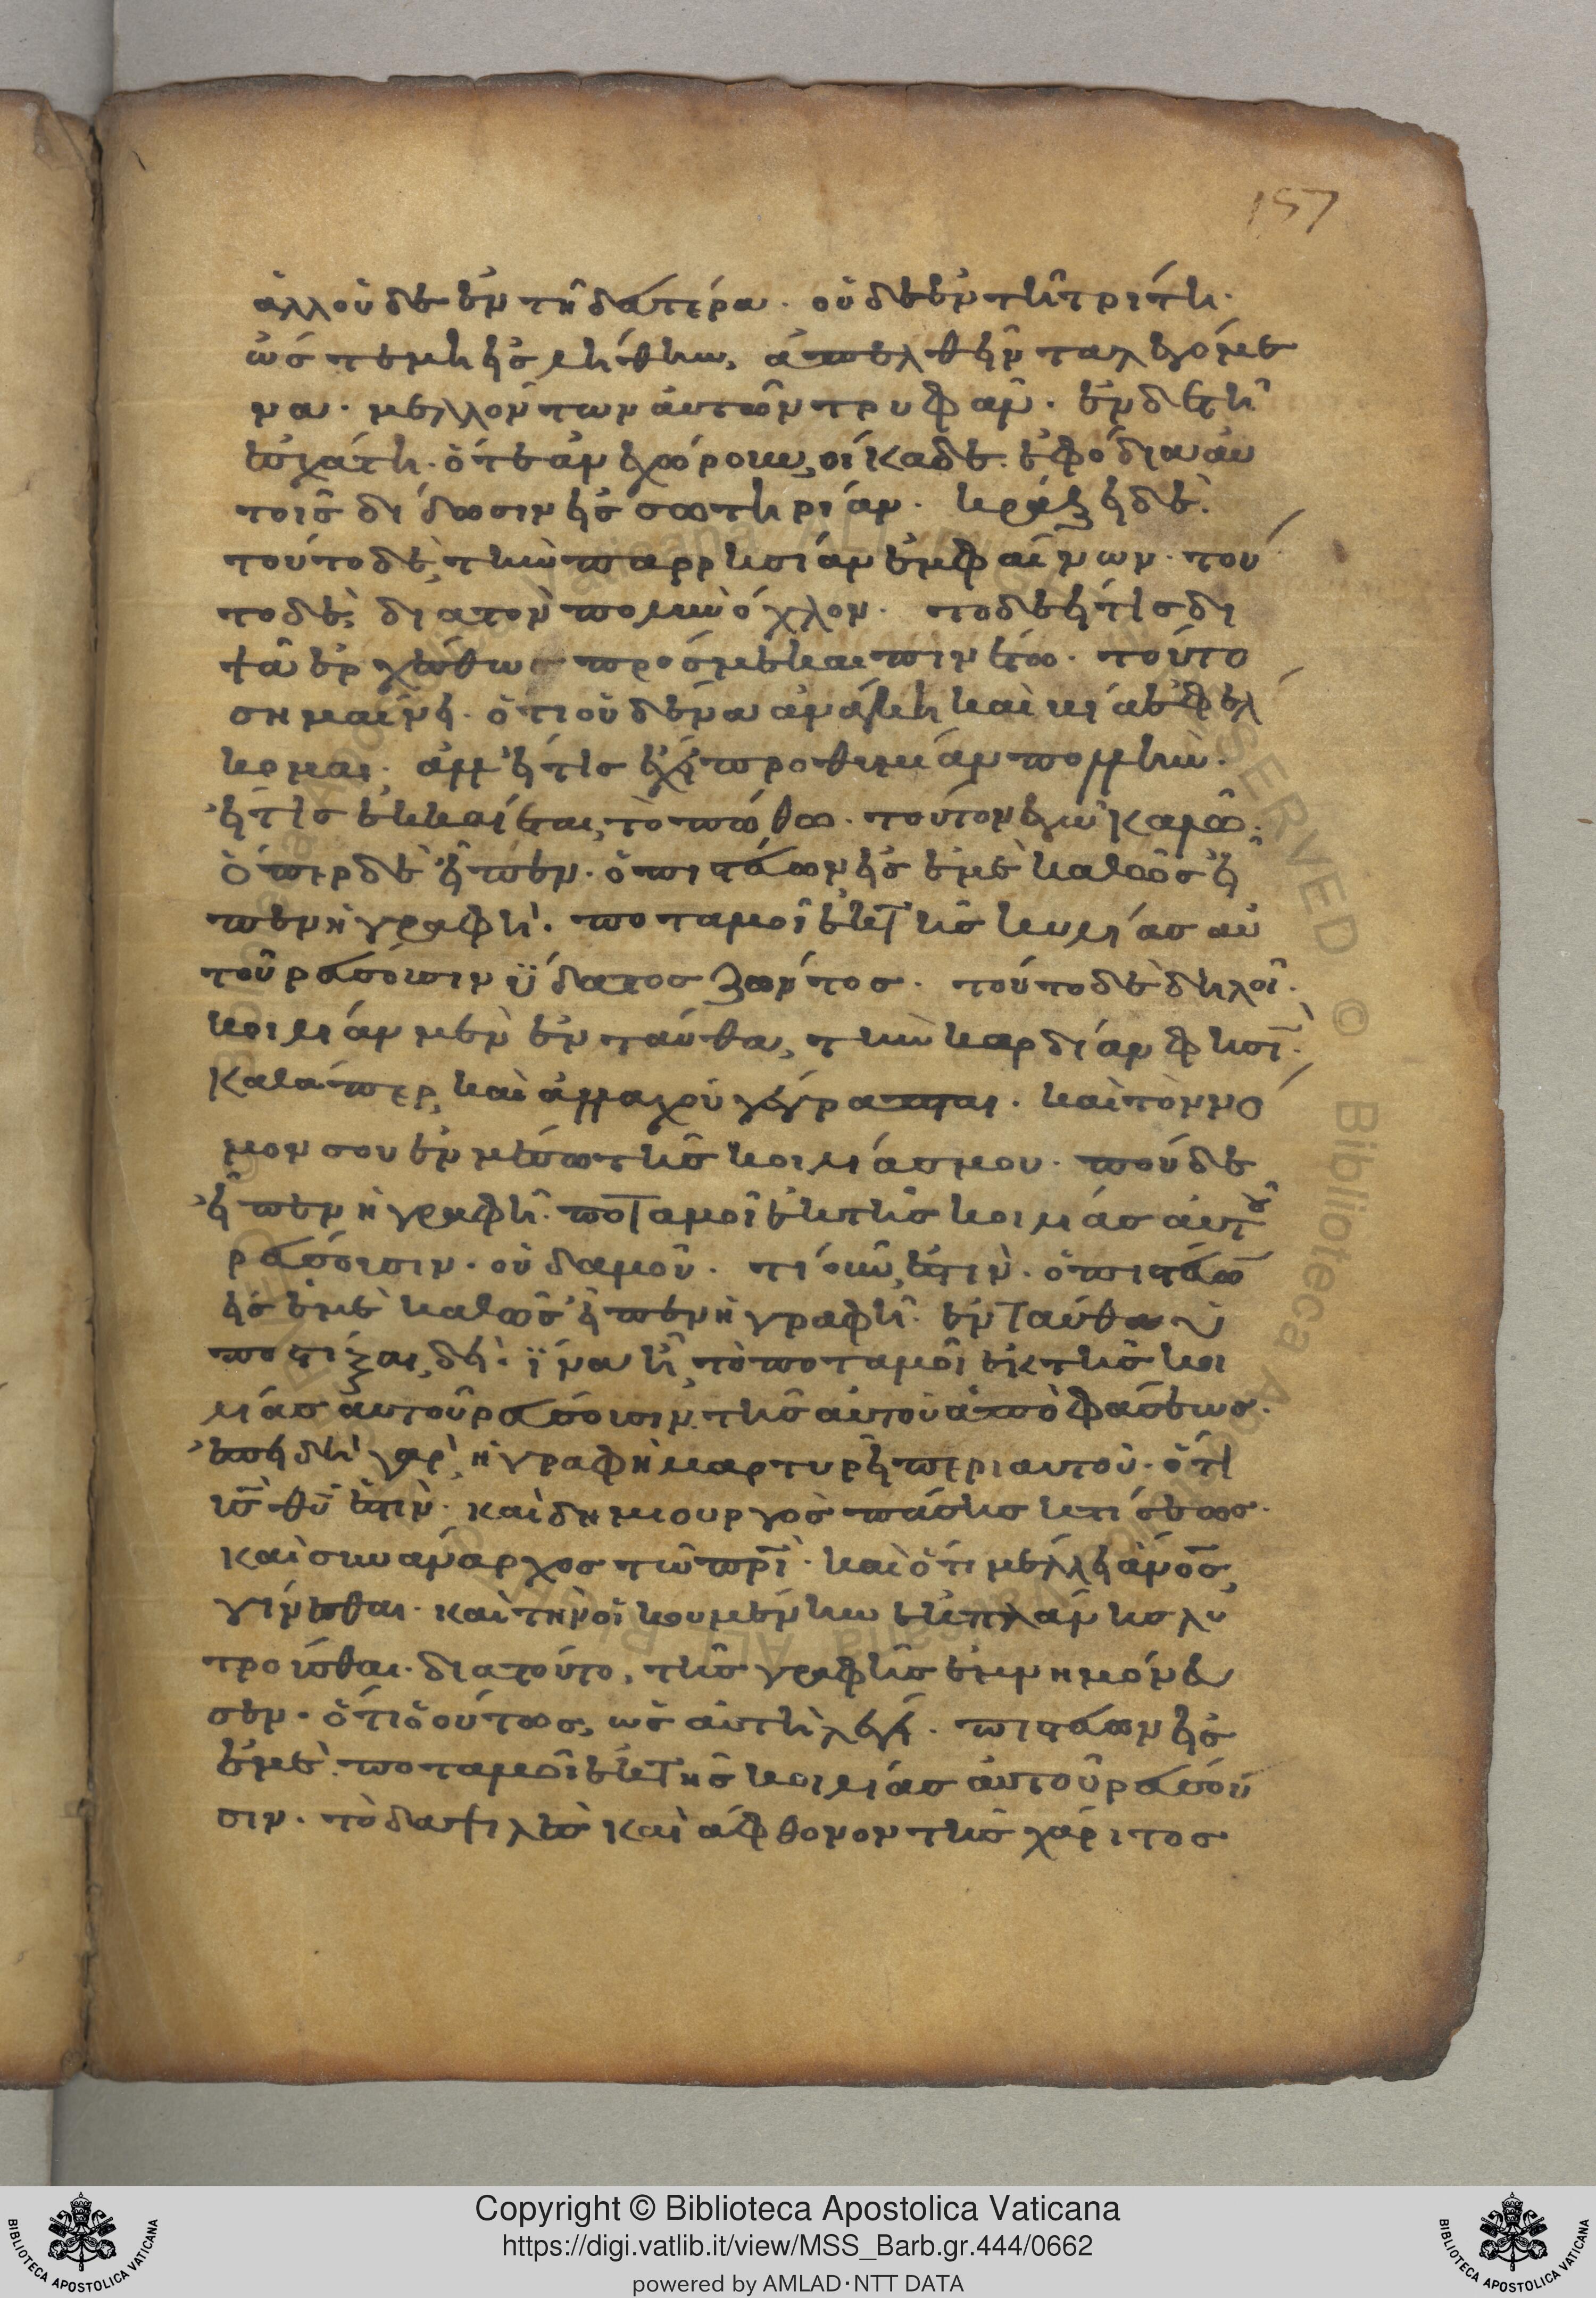 157
ἀλλ οὐδὲ ἐν τῆ δευτέρα· οὐδὲ ἐν τῆ τρίτη·
ὥστε μὴ εἰς λήθην, ἀπελθεῖν τὰ λεγόμε
να· μελλόντων αὐτῶν τρυφᾶν· ἐν δὲ τῆ
ἐσχάτη· ὅτε ἀνεχώρουν οἴκαδε· ἐφόδια αὐ
τοῖς δίδωσιν εἰς σωτηρίαν· κράζει δὲ·
τοῦτο δὲ, τὴν παρρησίαν ἐμφαίνων· τοῦ
το δὲ, διὰ τὸν πολὺν ὄχλον· τὸ δὲ εἴ τις δι
ψᾶ ἐρχέσθω πρός με καὶ πινέτω· τοῦτο
σημαίνει· ὅτι οὐδένα ἀνάγκη καὶ βία ἐφέλ
κομαι· ἀλλ εἴ τις ἔχει προθυμίαν πολλὴν·
εἴ τις ἐκκαίεται τῶ πόθω· τοῦτον ἐγὼ καλῶ·
ὅπερ δὲ εἶπεν· ὁ πιστεύων εἰς ἐμὲ καθὼς εἶ
πεν ἡ γραφὴ· ποταμοὶ ἐκ τῆς κοιλίας αὐ
τοῦ ρεύσουσιν ὕδατος ζῶντος· τοῦτο δὲ δηλοῖ·
κοιλίαν μὲν ἐνταῦθα, τὴν καρδίαν φησὶ·
καθάπερ καὶ ἀλλαχοῦ γέγραπται· καὶ τὸν νό
μον σου ἐν μέσω τῆς κοιλίας μου· ποῦ δὲ
εἶπεν ἡ γραφὴ· ποταμοὶ ἐκ τῆς κοιλίας αὐτοῦ
ρεύσουσιν· οὐδαμοῦ· τί οὖν ἐστὶν· ὁ πιστεύων
εἰς ἐμὲ καθὼς εἶπεν ἡ γραφὴ· ἐνταῦθα ὑ
ποστίξαι δεῖ· ἵνα ἦ τὸ ποταμοὶ ἐκ τῆς κοι
λίας αὐτοῦ ρεύσουσιν, τῆς αὐτοῦ ἀποφάσεως·
ἐπειδὴ γὰρ ἡ γραφὴ μαρτυρεῖ περὶ αὐτοῦ· ὅτι
υς θυ ἐστὶν· καὶ δημιουργὸς πάσης κτίσεως·
καὶ συνάναρχος τῶ πρι· καὶ ὅτι μέλλει ανος
γίνεσθαι· καὶ τὴν οἰκουμένην ἐκ πλάνης λυ
τροῦσθαι· διὰ τοῦτο, τῆς γραφῆς ἐμνημόνευ
σεν· ὅτι ὁ οὕτως, ὡς αὐτὴ λέγει· πιστεύων εἰς
ἐμὲ· ποταμοὶ ἐκ τῆς κοιλίας αὐτοῦ ρεύσου
σιν· τὸ δαψιλὲς καὶ ἄφθονον τῆς χάριτος
Copyright © Biblioteca Apostolica Vaticana
https://digi.vatlib.it/view/MSS_Barb.gr.444/0662
powered by AMLAD·NTT DATA
BIBLIOTECA APOSTOLICA VATICANA
BIBLIOTECA APOSTOLICA VATICANA